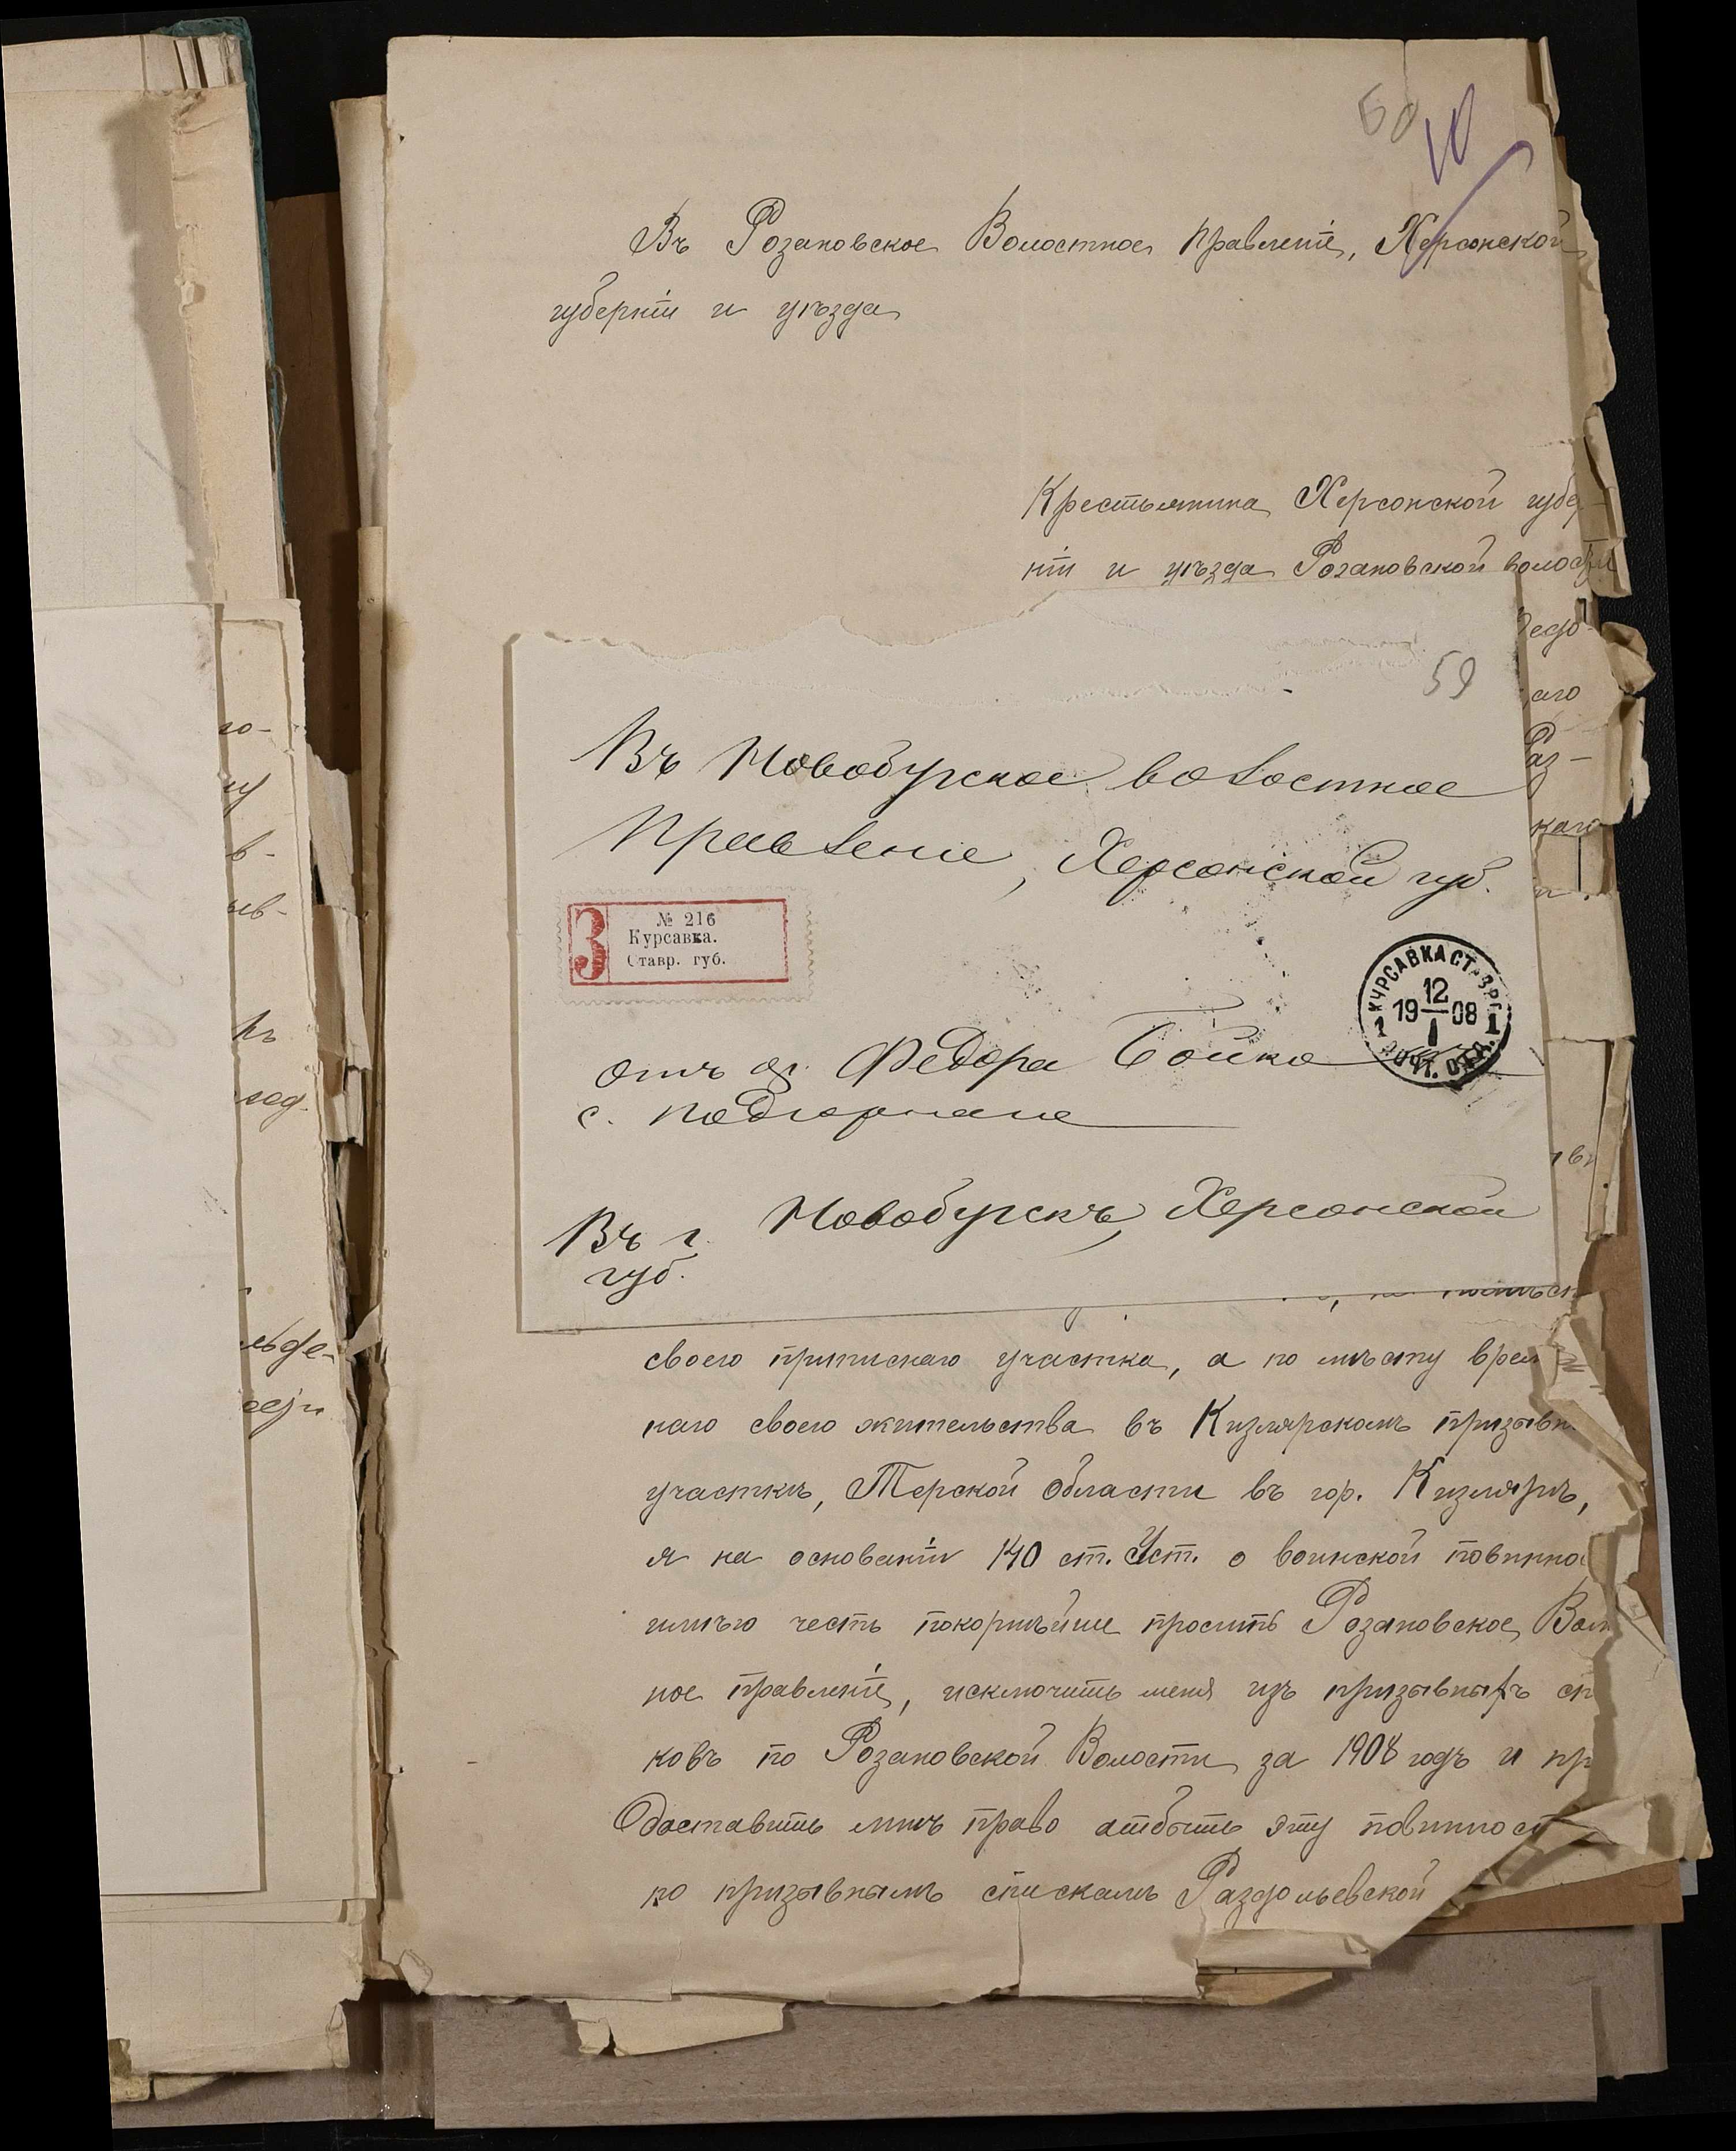 60
10
Въ Розановское Волостное правленіе, Херсонской
губерніи и уѣзда
Крестьянина Херсонской губер-
ніи и уѣзда Розановской волости
59
Въ Новобугское волостное
Правление, Херсонской губ.
З
№ 216
Курсавка.
Ставр. губ.
КУРСАВКА СТАВР. Г.
12
19 08
I
1 1
ПОЧТ. ОТД.
отъ Федора Бойко
с. Подгорное
Въ г. Новобугскъ, Херсонской
губ.
аго
Раз-
каго
го-
в-
год.
своего приписнаго участка, а по мѣсту врем
наго своего жительства въ Кизлярскомъ призывн
участкѣ, Терской области въ гор. Кизлярѣ,
я на основаніи 140 ст. Уст. о воинской повинно
имѣю честь покорнѣйше просить Розановское Вол
ное правленіе, исключить меня изъ призывныхъ сп
ковъ по Розановской Волости за 1908 годъ и пр
доставить мнѣ право отбыть эту повинност
по призывнымъ спискамъ Раздольевской